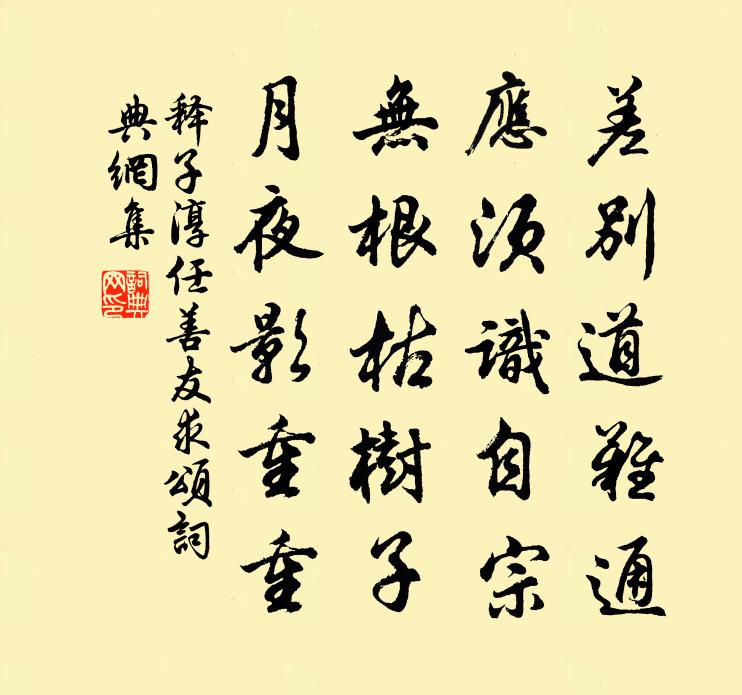 差別道難通
應須識自宗
無根枯樹子
月夜影重重
释子淳任善友求頌詞
典網集
詞典
网印